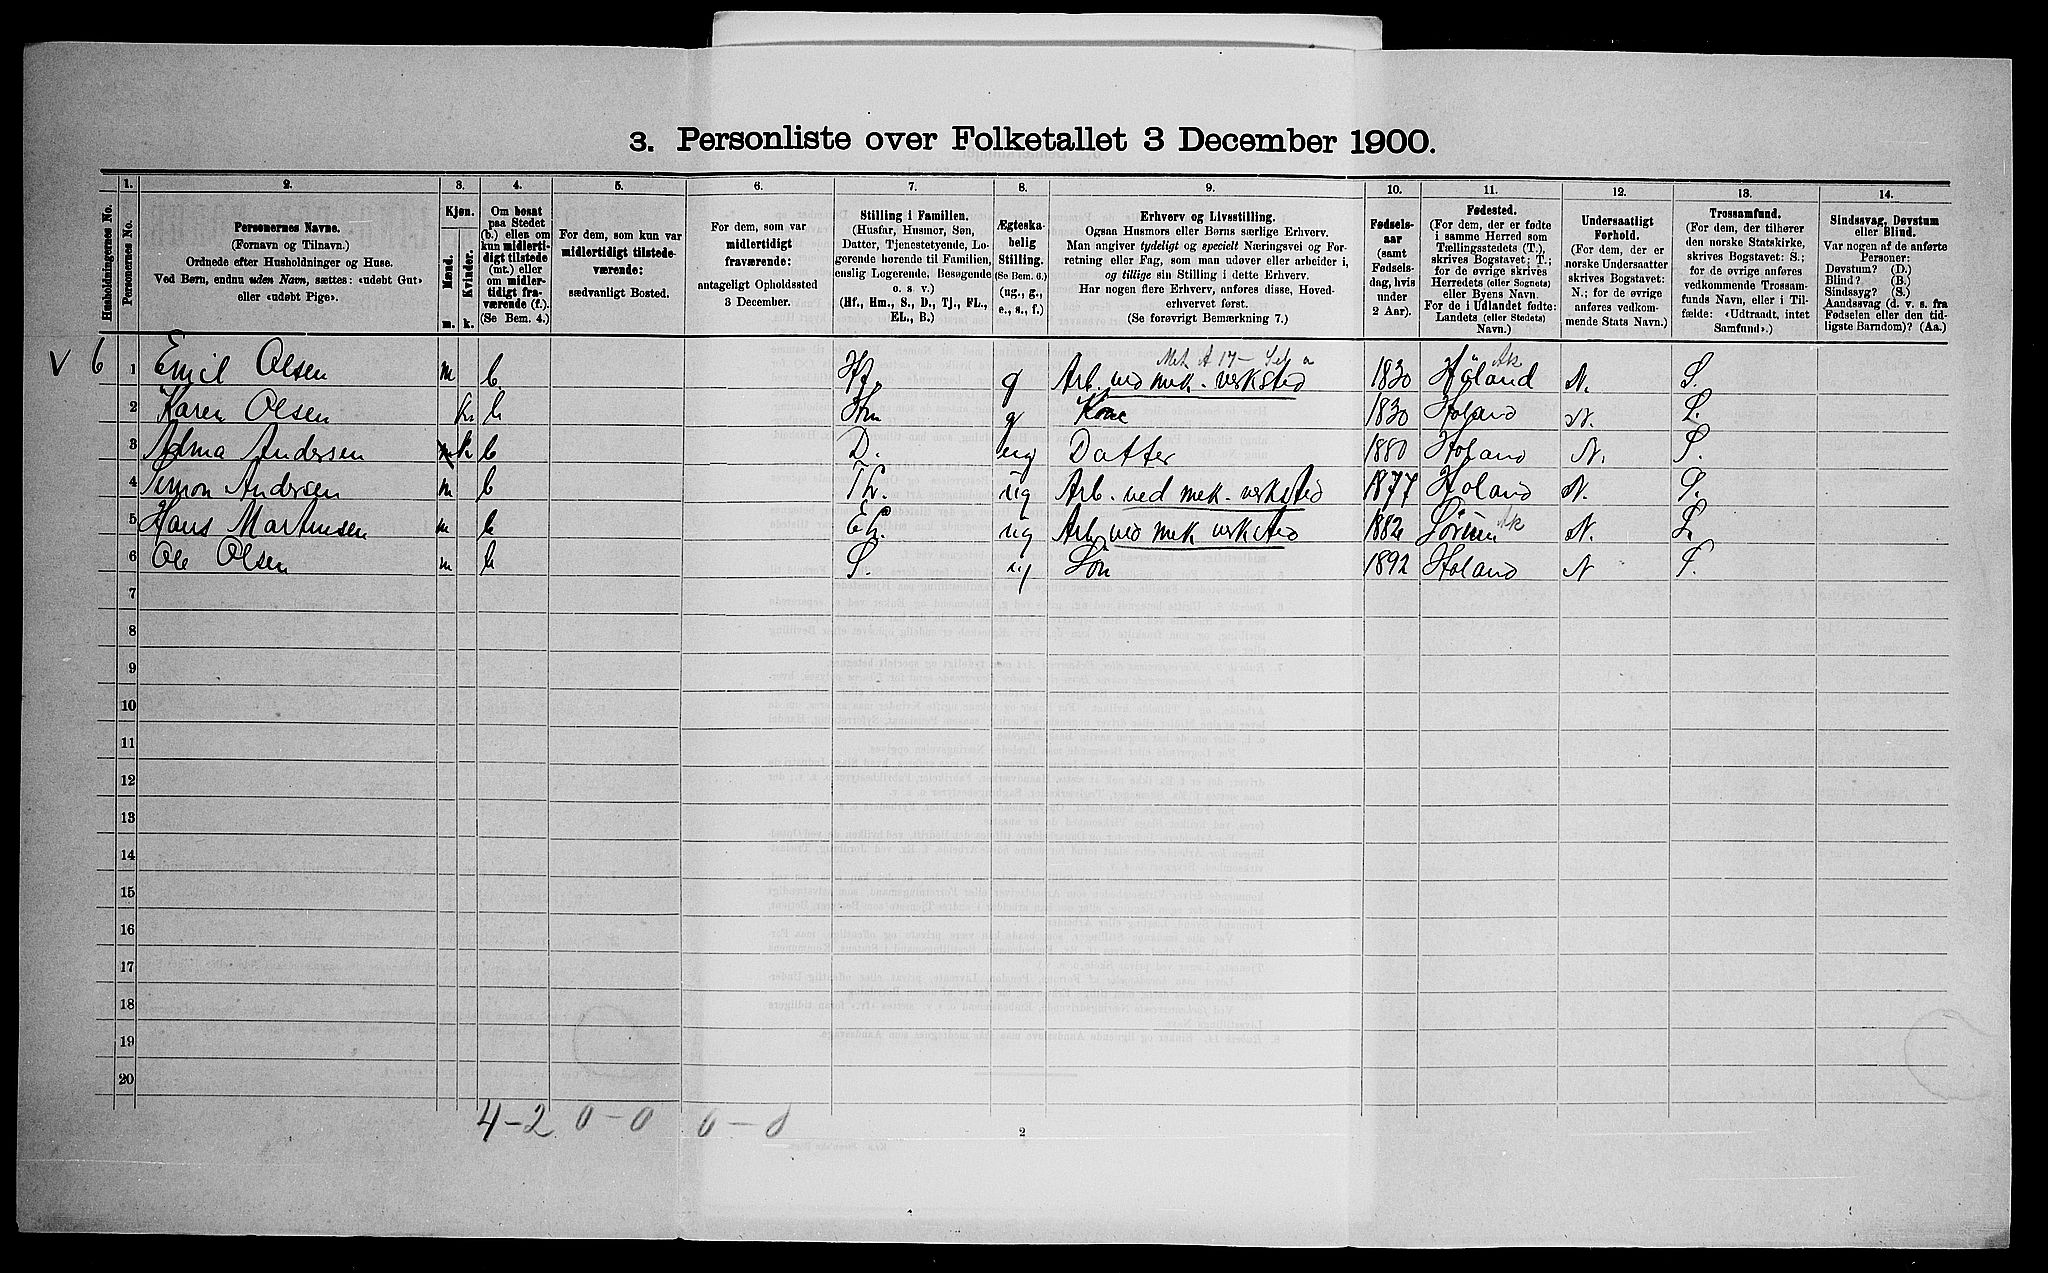 3. Personliste over Folketallet 3 December 1900.
1. 2. 3. 4. 5. 6. 7. 8. 9. 10. 11. 12. 13. 14.
Husholdningernes No.
Personernes No.
Personernes Navne.
(Fornavn og Tilnavn.)
Ordnede efter Husholdninger og Huse.
Ved Børn, endnu uden Navn, sættes: «udøbt Gut»
eller «udøbt Pige».
Kjøn.
Mænd.
Kvinder.
m. k.
Om bosat
paa Stedet
(b.) eller om
kun midlerti-
digt tilstede
(mt.) eller
om midler-
tidigt fra-
værende (f.).
(Se Bem. 4.)
For dem, som kun var
midlertidigt tilstede-
værende:
sædvanligt Bosted.
For dem, som var
midlertidigt
fraværende:
antageligt Opholdssted
3 December.
Stilling i Familien.
(Husfar, Husmor, Søn,
Datter, Tjenestetyende, Lo-
gerende hørende til Familien,
enslig Logerende, Besøgende
o. s. v.)
(Hf., Hm., S., D., Tj., FL.,
EL., B.)
Ægteska-
belig
Stilling.
(Se Bem. 6.)
(ug., g.,
e., s., f.)
Erhverv og Livsstilling.
Ogsaa Husmors eller Børns særlige Erhverv.
Man angiver tydeligt og specielt Næringsvei og For-
retning eller Fag, som man udøver eller arbeider i,
og tillige sin Stilling i dette Erhverv.
Har nogen flere Erhverv, anføres disse, Hoved-
erhvervet først.
(Se forøvrigt Bemærkning 7.)
Fødsels-
aar
(samt
Fødsels-
dag, hvis
under
2 Aar).
Fødested.
(For dem, der er fødte
i samme Herred som
Tællingsstedets (T.),
skrives Bogstavet: T.;
for de øvrige skrives
Herredets (eller Sognets)
eller Byens Navn.
For de i Udlandet fødte:
Landets (eller Stedets)
Navn.)
Undersaatligt
Forhold.
(For dem, der er
norske Undersaatter
skrives Bogstavet:
N.; for de øvrige
anføres vedkom-
mende Stats Navn.)
Trossamfund.
(For dem, der tilhører
den norske Statskirke,
skrives Bogstavet: S.;
for de øvrige anføres
vedkommende Trossam-
funds Navn, eller i Til-
fælde: «Udtraadt, intet
Samfund».)
Sindssvag, Døvstum
eller Blind.
Var nogen af de anførte
Personer:
Døvstum? (D.)
Blind? (B.)
Sindssyg? (S.)
Aandssvag (d. v. s. fra
Fødselen eller den tid-
ligste Barndom)? (Aa.)
V 6 1 Emil Olsen m b. Hf. g Arb. ved mek. verksted 1830 Høland Ak N. S.
2 Karen Olsen k b Hm g Kone 1830 Holand N. S.
3 Andersen k b D. ug Datter 1880 Holand N. S.
4 Simon Andersen m b ug Arb. ved mek. verksted 1877 Holand N. S.
5 Hans Martinsen m b ug Arb. ved mek verksted 1882 Sørum Ak N. S.
6 Ole Olsen m b S. ug Søn 1892 Holand N S.
7
8
9
10
11
12
13
14
15
16
17
18
19
20
4-2 0-0 0-0
2